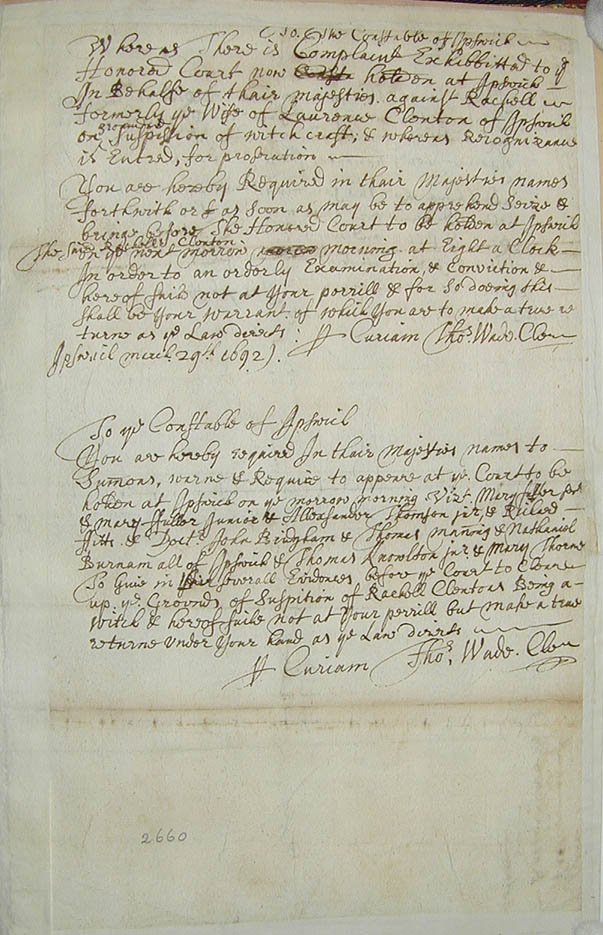 To. The Constable of Ipswich
Whereas There is Complaint Exhibbitted to ye
Honored Court now holden at Ipswich
In Behalfe of thair majesties. against Rachell
formerly ye Wife of Laurence Clenton of Ipswich
grounded
on Suspition of witchcraft; & whereas Recognizance
is Entred, for prosecution
You are hereby Required in thair Majesties names
forthwith or as soon as may be to apprehend Seize &
bringe before The Honored Court to be holden at Ipswich
The said Rachell Clenton
on ye next morrow morning at Eight a Clock
In order to an orderly Examination, & Conviction &
hereof faile not at Your perrill & for so doeing this
shall be Your warrant. of which You are to make a true re
turne as ye Law directs:
Curiam Thos. Wade. Cler
Ipswich march. 29th. 1692).
To ye Constable of Ipswich
You are hereby required In thair Majesties names to
Sumons, warne & Require to appeare at ye. Court to be
holden at Ipswich on ye morrow morning Vizt. Mary fuller senr
& mary ffuller Junior & Allexsander Thomson jnr. & Richard
ffitts. & Doctr. John Bridgham & Thomas maning & Nathaniel
Burnam all of Ipswich & Thomas Knowlton jnr & Mary Thorne
To Giue in severall Evidences, before ye Court to Cleare
up. ye. Grounds of Suspition of Rachell Clentons Being a
witch & hereof faile not at Your perrill but make a true
returne under Your hand as ye Law directs
Curiam Thos. Wade. Cler
2660